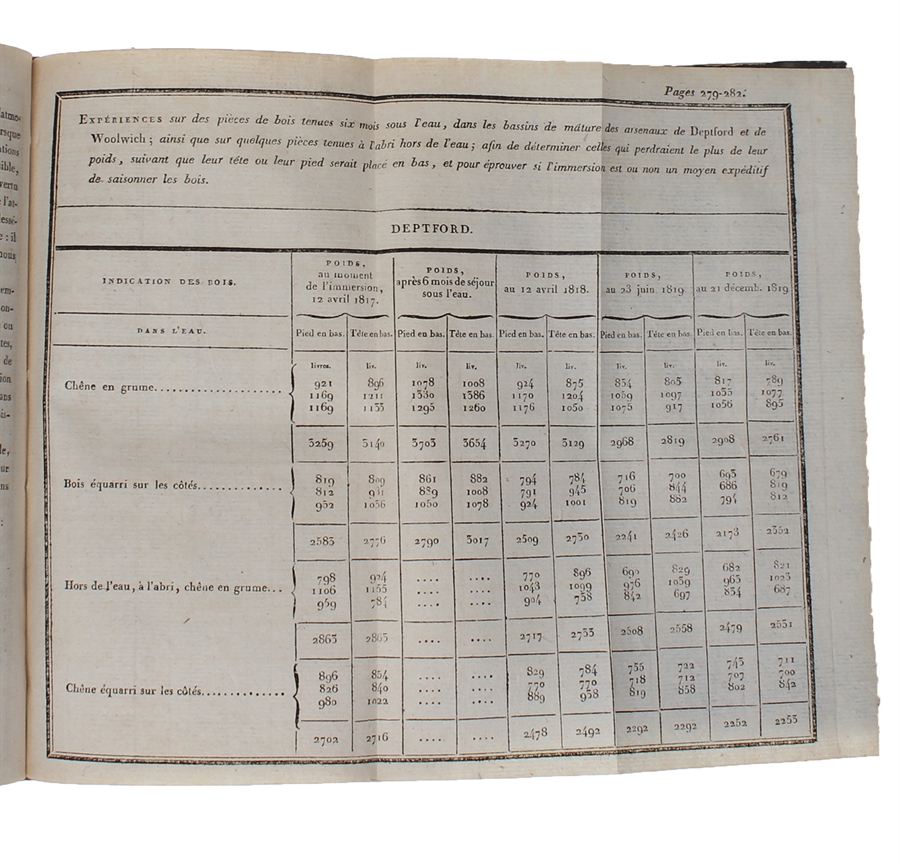 Pages 279-282.
EXPÉRIENCES sur des pièces de bois tenues six mois sous l'eau, dans les bassins de mâture des arsenaux de Deptford et de
Woolwich ; ainsi que sur quelques pièces tenues à l'abri hors de l'eau ; afin de déterminer celles qui perdraient le plus de leur
poids, suivant que leur tête ou leur pied serait placé en bas, et pour éprouver si l'immersion est ou non un moyen expéditif
de saisonner les bois.
DEPTFORD.
INDICATION DES BOIS.
POIDS,
au moment
de l'immersion,
12 avril 1817.
POIDS,
après 6 mois de séjour
sous l'eau.
POIDS,
au 12 avril 1818.
POIDS,
au 23 juin 1819
POIDS,
au 21 décemb. 1819
DANS L'EAU.
Pied en bas. Tête en bas. Pied en bas. Tête en bas. Pied en bas. Tête en bas. Pied en bas. Tête en bas. Pied en bas. Tête en bas.
livres. liv. liv. liv. liv. liv. liv. liv. liv. liv.
Chêne en grume
921 896 1078 1008 924 875 834 803 817 789
1169 1211 1330 1386 1170 1204 1059 1097 1035 1077
1169 1133 1295 1260 1176 1050 1075 917 1056 895
3259 3140 3703 3654 3270 3129 2968 2819 2908 2761
Bois équarri sur les côtés
819 809 861 882 794 784 716 700 693 679
812 911 889 1008 791 945 706 844 686 819
952 1056 1050 1078 924 1001 819 882 794 812
2583 2776 2790 3017 2509 2730 2241 2426 2173 2352
Hors de l'eau, à l'abri, chêne en grume...
798 924 .... .... 770 896 690 829 682 821
1106 1155 .... .... 1043 1099 976 1039 963 1023
959 784 .... .... 904 758 842 697 834 687
2863 2863 .... .... 2717 2753 2508 2558 2479 2531
Chêne équarri sur les côtés
896 854 .... .... 829 784 755 722 743 711
826 840 .... .... 770 770 718 712 707 700
980 1022 .... .... 889 938 819 858 802 842
2702 2716 .... .... 2478 2492 2292 2292 2252 2253